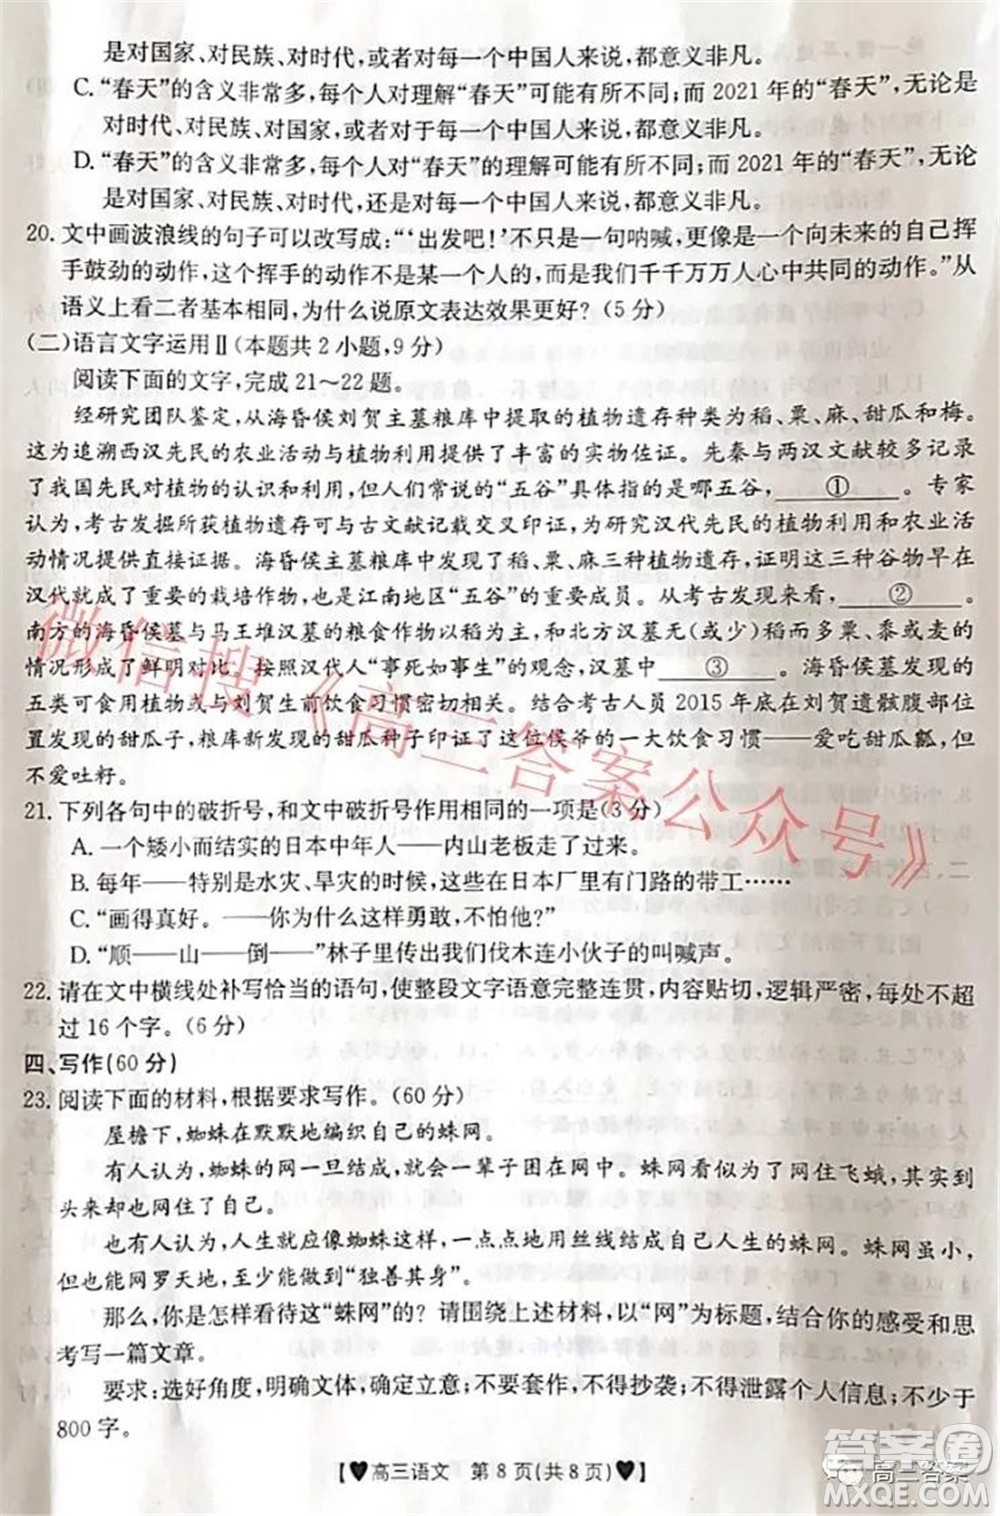 是对国家、对民族、对时代,或者对每一个中国人来说,都意义非凡。
C.“春天”的含义非常多,每个人对理解“春天”可能有所不同;而2021年的“春天”,无论是
对时代、对民族、对国家,或者对于每一个中国人来说,都意义非凡。
D.“春天”的含义非常多,每个人对“春天”的理解可能有所不同;而2021年的“春天”,无论
是对国家、对民族、对时代,还是对每一个中国人来说,都意义非凡。
20.文中画波浪线的句子可以改写成:“‘出发吧!’不只是一句呐喊,更像是一个向未来的自己挥
手鼓劲的动作,这个挥手的动作不是某一个人的,而是我们千千万万人心中共同的动作。”从
语义上看二者基本相同,为什么说原文表达效果更好?(5分)
(二)语言文字运用Ⅱ(本题共2小题,9分)
阅读下面的文字,完成21~22题。
经研究团队鉴定,从海昏侯刘贺主墓粮库中提取的植物遗存种类为稻、粟、麻、甜瓜和梅。
这为追溯西汉先民的农业活动与植物利用提供了丰富的实物佐证。先秦与两汉文献较多记录
了我国先民对植物的认识和利用,但人们常说的“五谷”具体指的是哪五谷,①。专家
认为,考古发掘所获植物遗存可与古文献记载交叉印证,为研究汉代先民的植物利用和农业活
动情况提供直接证据。海昏侯主墓粮库中发现了稻、粟、麻三种植物遗存,证明这三种谷物早在
汉代就成了重要的栽培作物,也是江南地区“五谷”的重要成员。从考古发现看,②。
南方的海昏侯墓与马王堆汉墓的粮食作物以稻为主,和北方汉墓无(或少)稻而多粟、黍或麦的
情况形成了鲜明对比。按照汉代人“事死如事生”的观念,汉墓中③。海昏侯墓发现的
五类可食用植物或与刘贺生前饮食习惯密切相关。结合考古人员2015年底在刘贺遗骸腹部位
置发现的甜瓜子,粮库新发现的甜瓜种子印证了这位侯爷的一大饮食习惯——爱吃甜瓜瓤,但
不爱吐籽。
21.下列各句中的破折号,和文中破折号作用相同的一项是(3分)
A.一个矮小而结实的日本中年人——内山老板走了过来。
B.每年——特别是水灾、旱灾的时候,这些在日本厂里有门路的带工……
C.“画得真好。——你为什么这样勇敢,不怕他?”
D.“顺——山——倒——”林子里传出我们伐木连小伙子的叫喊声。
22.请在文中横线处补写恰当的语句,使整段文字语意完整连贯,内容贴切,逻辑严密,每处不超
过16个字。(6分)
四、写作(60分)
23.阅读下面的材料,根据要求写作。(60分)
屋檐下,蜘蛛在默默地编织自己的蛛网。
有人认为,蜘蛛的网一旦结成,就会一辈子困在网中。蛛网看似为了网住飞蛾,其实到
头来却也网住了自己。
也有人认为,人生就应像蜘蛛这样,一点点地用丝线结成自己人生的蛛网。蛛网虽小,
但也能网罗天地,至少能做到“独善其身”。
那么,你是怎样看待这“蛛网”的?请围绕上述材料,以“网”为标题,结合你的感受和思
考写一篇文章。
要求:选好角度,明确文体,确定立意;不要套作,不得抄袭;不得泄露个人信息;不少于
800字。
【♥高三语文 第8页(共8页)♥】
微信搜《高三答案公众号》
高三答案
答案圈
MXQE.COM